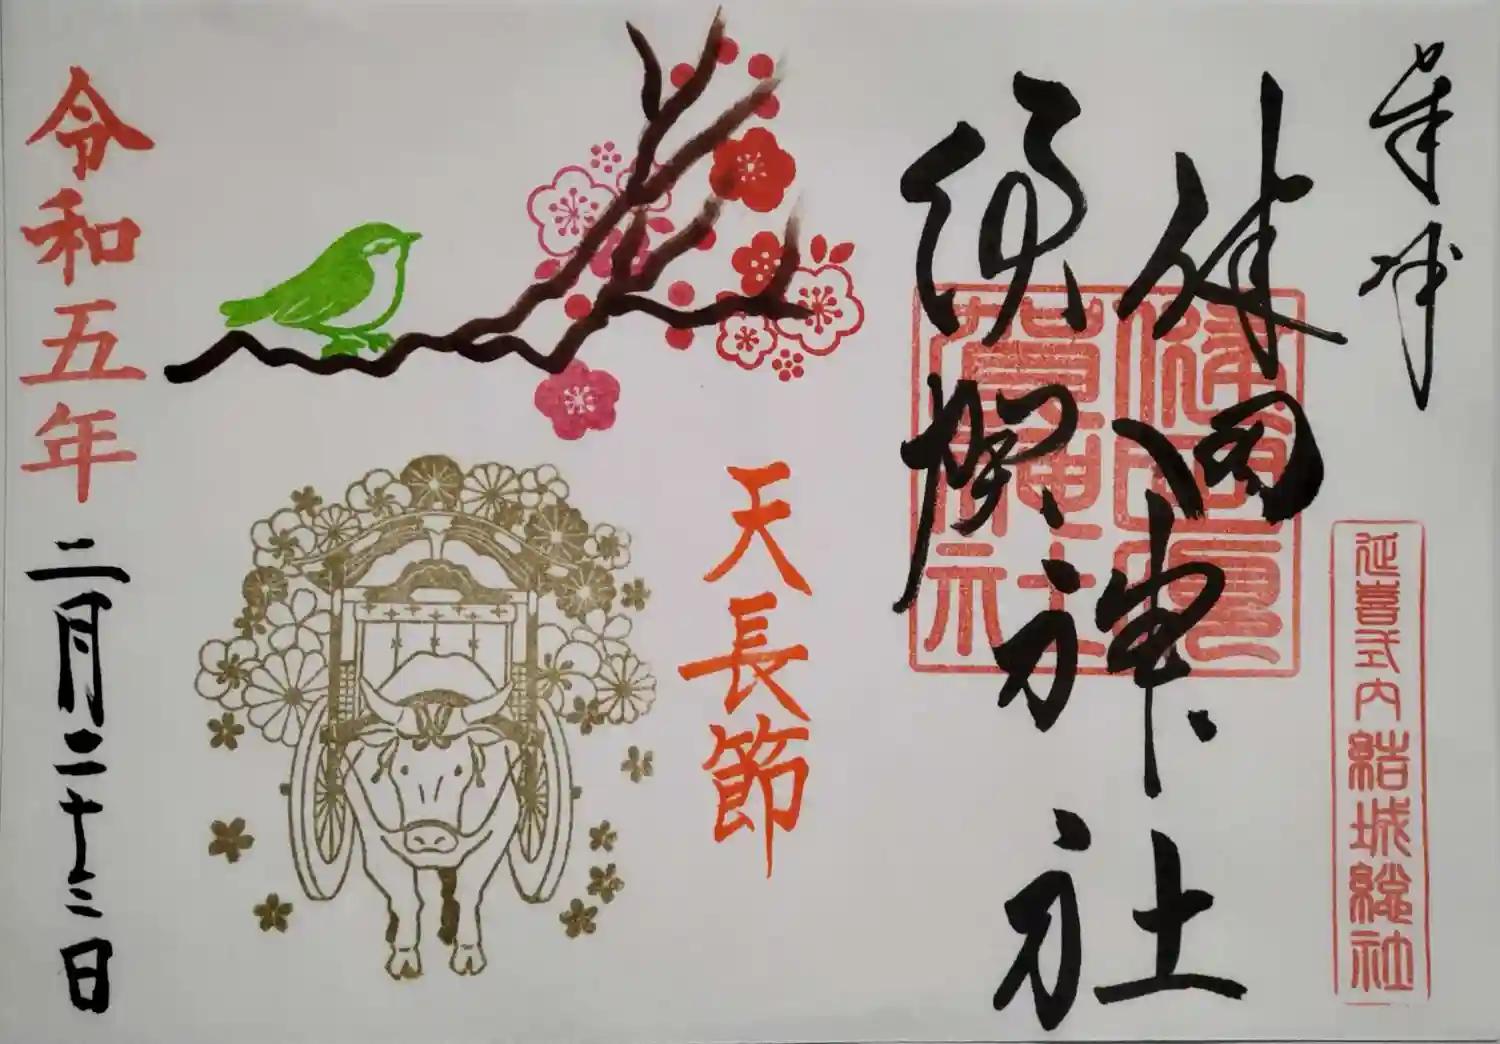 奉拝
延喜式内結城総社
健田神社
須賀神社
健田須
賀神社
天長節
令和五年二月二十三日